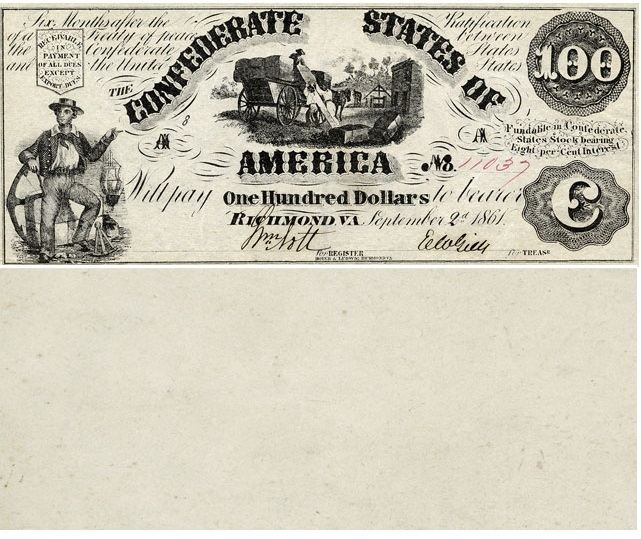 Six Months after the Ratification
of a Treaty of peace between
the Confederate States
and the United States
RECEIVABLE
IN
PAYMENT
OF ALL DUES
EXCEPT
EXPORT DUES
THE
CONFEDERATE STATES OF
AMERICA
100
A
8
A
No. 11037
Fundable in Confederate
States Stock bearing
Eight per Cent Interest
Will pay One Hundred Dollars to bearer
C
RICHMOND VA September 2d 1861.
for REGISTER
for TREASR
HOYER & LUDWIG, RICHMOND VA